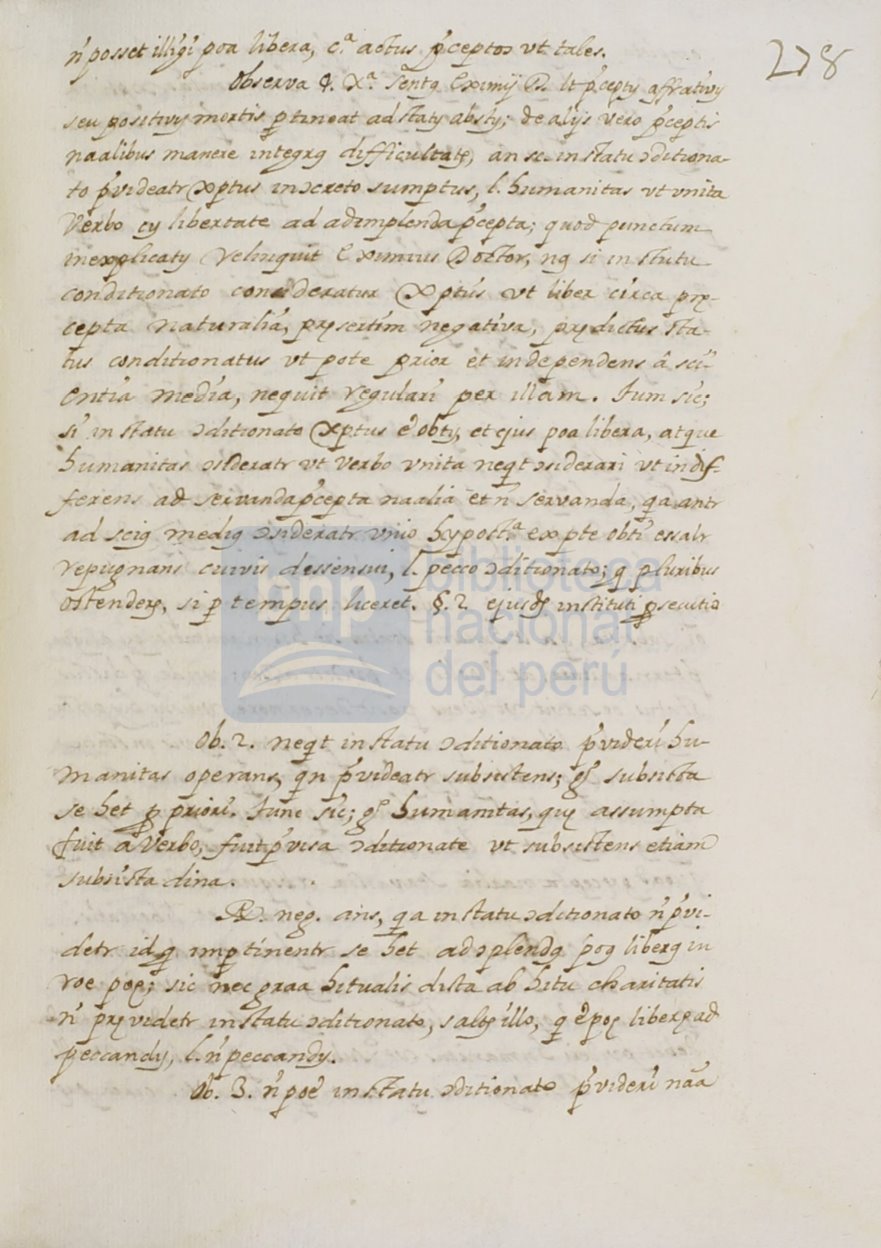 278
ń posset illigi poa libera, c.ª actus pceptos vt tales.
Observa 2. Xª. sentą Eximij D. lt pcepty affrativy
seu positivy mortis ptineat ad staty absty; de alijs vero pceptis
naalibus manere integrą difficultatę, an sc. in statu ɔditiona-
to pvideatr Xptus inɔcreto sumptus, l. humanitas vt vnita
Verbo cy libertate ad adimplenda pcepta; quod punctum
inexplicaty relinquit Eximius Doctor, ną si in statu
conditionato consideratur Xptus vt liber circa pręcepta
cepta naturalia, pręsertim negativa, prędictus sta-
tus conditionatus vt pote prior et independens â sci-
entia media, nequit regulari per illam. Tum sic;
si in statu ɔditionato Xptus ê obty, et ejus poa libera, atque
humanitas ɔsideratr vt Verbo vnita neqt ɔsiderari vt indif-
ferens ad servanda pcepta naalia et ń servanda, qa antr
ad scią medią ɔsideratr vnio hypostª ex pte obti essalr
repugnans cuivis dissensui, l. pecco ɔditionato; q pluribus
ostenderę, si p tempus liceret. §. 2. ejusdę instituti psecutio
Ob. 2. neqt in statu ɔditionato pvideri hu-
manitas operans, qn pvideatr subsistens; gº subsista
se het p priori. Tunc sic; gº humanitas, quę assumpta
fuit a Verbo, fuit pvisa ɔditionate vt subsistens etiam
subsista dina.
R. neg. ans, qa in statu ɔditionato ń pvi-
detr id, q imptinentr se het ad ɔplendą poą liberą in
roe poę; sic nec graa hitualis dista ab hitu charitatis
ń pręvidetr in statu ɔditionato, saltę illo, q ê poę liberę ad
peccandy, l. ń peccandy.
Ob. 3. ń poê in statu ɔditionato pvideri naâ
biblioteca
nacional
del perú
bnp